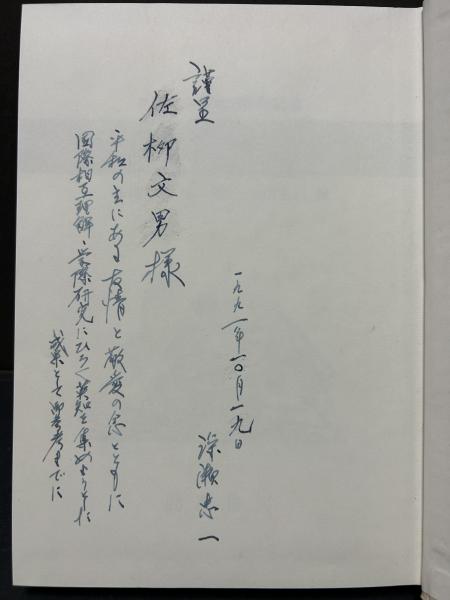 謹呈
佐柳文男様
平和の主にある友情と敬愛の念とともに
国際相互理解・学際研究にひろく英知を集めようとした
成果として御参考までに
一九九一年一〇月一九日
深瀬忠一